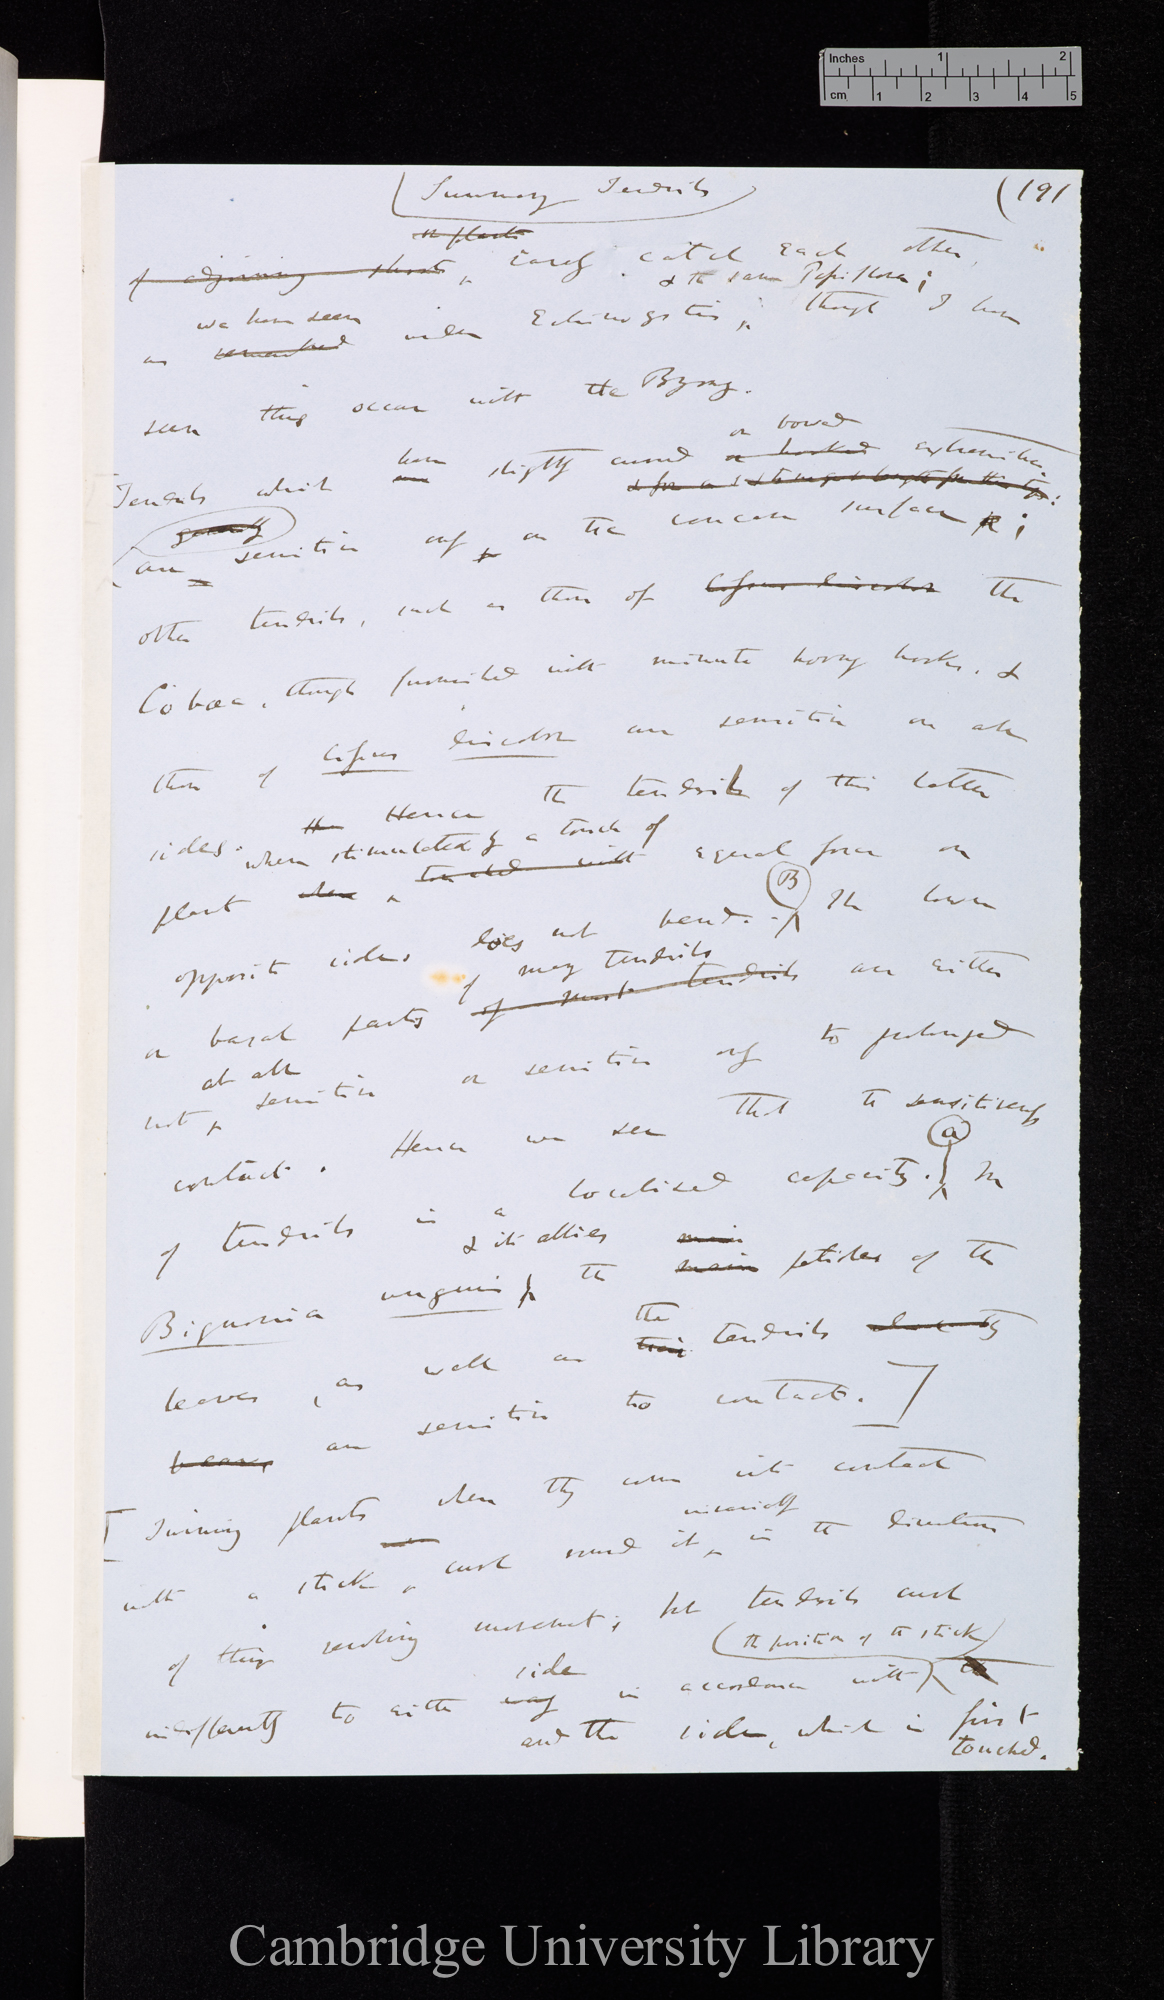 Inches 1 2
cm 1 2 3 4 5
Summary Tendrils
(191
or plants
of adjoining shoots, rarely catch each other,
& the same Passiflora;
we have seen
as remarked under Echinocystis; though I have
seen this occur with the Bryony.
or bowed
Tendrils which have slightly curved or hooked extremities
generally
are sensitive only on the concave surface;
other tendrils, such as those of Cissus discolor the
Cobæa, though furnished with minute horny hooks, &
those of Cissus discolor are sensitive on all
sides. Hence the tendrils of this latter
when stimulated by a touch of
plant when touched with equal force on
B
opposite sides does not bend. The lower
of many tendrils
or basal parts of most tendrils are either
at all
not sensitive or sensitive only to prolonged
contact. Hence we see that the sensitiveness
a
of tendrils is a localised capacity. In
& its allies main
Bignonia unguis the main petioles of the
the
leaves, as well as their tendrils
are sensitive to contact.]
Twining plants when they come into contact
invariably
with a stick, curl round it, in the direction
of their revolving movement; but tendrils curl
(the position of the stick)
side
indifferently to either way in accordance with the
and the side, which is first
touched.
Cambridge University Library